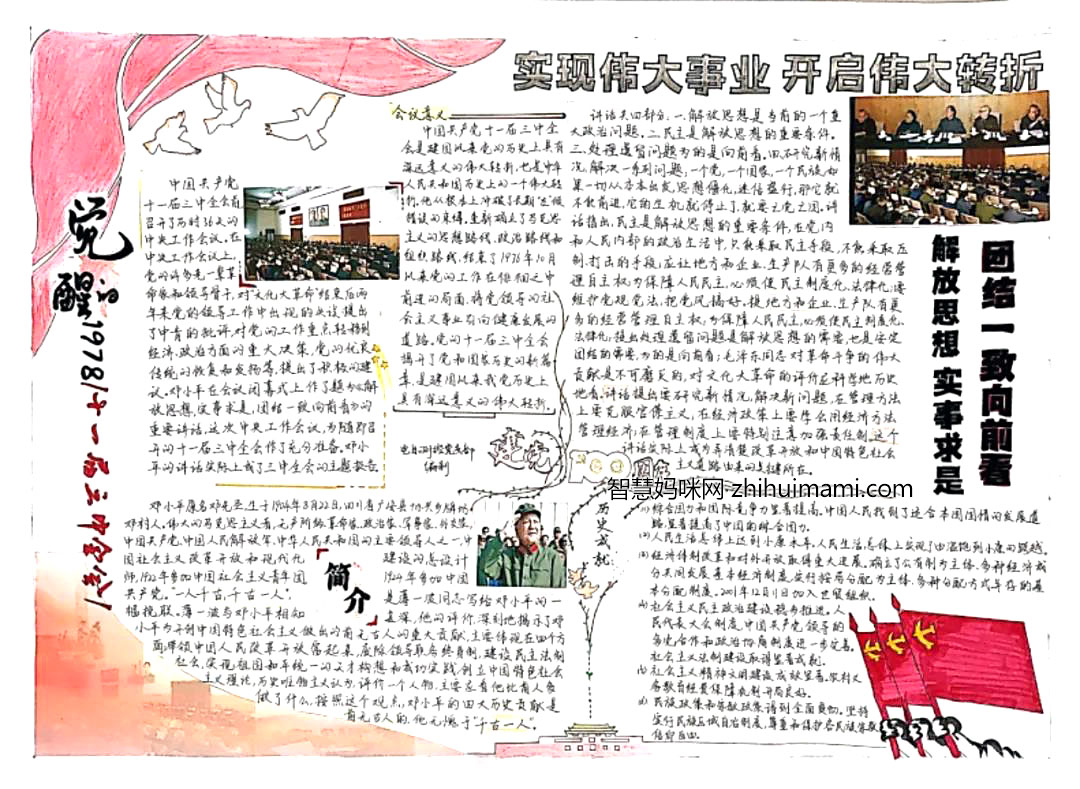 实现伟大事业 开启伟大转折
觉醒的1978/十一届三中全会/
中国共产党
十一届三中全会前
召开了历时36天的
中央工作会议。在
中央工作会议上,
党的许多老一辈革
命家和领导骨干,对"文化大革命"结束后两
年来党的领导工作中出现的失误提出
了中肯的批评,对党的工作重点转移到
经济、政治方面的重大决策,党的优良
传统的恢复和发扬等,提出了积极的建
议。邓小平在会议闭幕式上作了题为《解
放思想,实事求是,团结一致向前看》的
重要讲话。这次中央工作会议,为随即召
开的十一届三中全会作了充分准备。邓小
平的讲话实际上成了三中全会的主题报告
会议意义
中国共产党十一届三中全
会是建国以来党的历史上具有
深远意义的伟大转折,也是中华
人民共和国历史上的一个伟大转
折。
主义的思想路线、政治路线和
组织路线,结束了1976年10月
以来党的工作在徘徊之中
前进的局面,将党领导的社
会主义事业引向健康发展的
道路。党的十一届三中全会
揭开了党和国家历史的新篇
章,是建国以来我党历史上
具有深远意义的伟大转折。
讲话共四部分:一.解放思想是当前的一个重
大政治问题。二.民主是解放思想的重要条件。
三.处理遗留问题为的是向前看。四.研究新情
况,解决一系列问题,一个党,一个国家,一个民族,如
果一切从本本出发,思想僵化,迷信盛行,那它就
不能前进,它的生机就停止了,就要亡党亡国。讲
话指出,民主是解放思想的重要条件,在党内
和人民内部的政治生活中,只能采取民主手段,不能采取压
制、打击的手段;应让地方和企业、生产队有更多的经营管
理自主权;为保障人民民主,必须使民主制度化、法律化;要
维护党规党法,把党风搞好。
法律化;提出处理遗留问题是解放思想的需要,也是安定
团结的需要,为的是向前看;毛泽东同志对革命斗争的伟大
贡献是不可磨灭的,对文化大革命的评价应科学地历史
地看。讲话提出要研究新情况,解决新问题,在管理方法
上要克服官僚主义,在经济政策上要学会用经济方法
管理经济;在管理制度上要特别注意加强责任制,这个
讲话实际上成为弄清楚改革开放和中国特色社会
主义道路由来的关键所在。
团结一致向前看
解放思想 实事求是
建党
周年
智慧妈咪网 zhihuimami.com
简介
邓小平原名邓先圣,生于1904年8月22日,四川省广安县协兴乡牌坊
邓村人。伟大的马克思主义者,无产阶级革命家、政治家、军事家、外交家,
中国共产党、中国人民解放军、中华人民共和国的主要领导人之一,中
国社会主义改革开放和现代化
建设的总设计
师,1922年参加中国社会主义青年团,
1924年参加中国
共产党。"一人千古,千古一人"。
是薄一波同志写给邓小平的一
幅挽联。薄一波与邓小平相知
甚深,他的评价,深刻地揭示了邓
小平为开创中国特色社会主义做出的前无古人的重大贡献,主要体现在四个方
面:带领中国人民改革开放富起来,废除领导职务终身制,建设民主法制
社会,实现祖国和平统一的天才构想和成功实践,创立中国特色社会
主义理论。历史唯物主义认为,评价一个人物,主要是看他比前人多
做了什么,按照这个观点,邓小平的四大历史贡献是
前无古人的,他无愧于"千古一人"。
历史成就
综合国力和国际竞争力显著提高,中国人民找到了适合本国国情的发展道
路,显著提高了中国的综合国力。
人民生活总体上达到小康水平,人民生活总体上实现了由温饱到小康的跨越。
经济体制改革和对外开放取得重大进展,确立了公有制为主体、多种经济成
分共同发展基本经济制度,实行按劳分配为主体、多种分配方式并存的基
本分配制度。2001年12月11日加入世贸组织。
社会主义民主政治建设稳步推进。人
民代表大会制度、中国共产党领导的
多党合作和政治协商制度进一步完善。
社会主义法制建设取得显著成就。
社会主义精神文明建设成效显著。农村义
务教育经费保障机制开局良好。
民族政策和宗教政策得到全面贯彻。坚持
实行民族区域自治制度,尊重和保护各民族宗教
信仰自由。